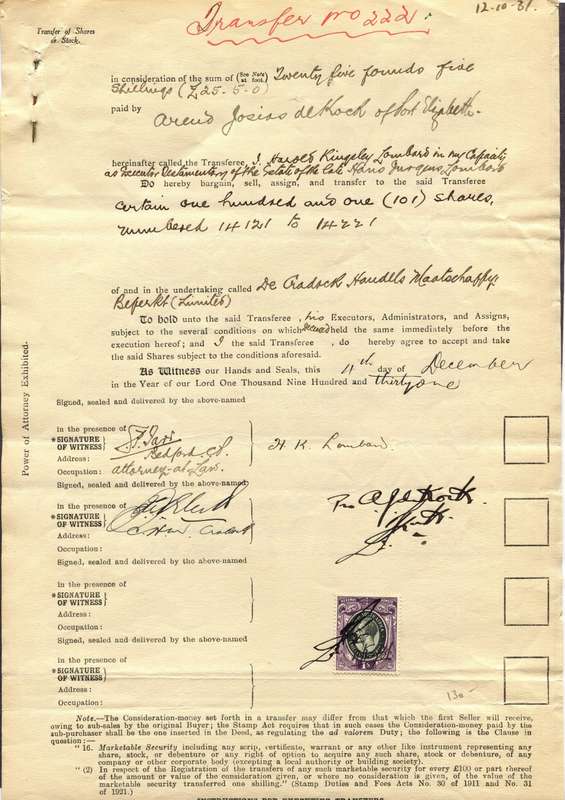 12.10.31.
Transfer of Shares
or Stock.
Transfer no 222.
in consideration of the sum of (See Note at foot.) Twenty five pounds five
Shillings (£25-5-0)
paid by
Arend Josias de Kock of Port Elizabeth.
hereinafter called the Transferee, I, Harold Kingsley Lombard in my Capacity
as Executor Testamentary of the Estate of the late Hans Jurgens Lombard
Do hereby bargain, sell, assign, and transfer to the said Transferee
Certain one hundred and one (101) shares,
numbered 14121 to 14221
of and in the undertaking called De Cradock Handels Maatschappij
Beperkt (Limited)
To hold unto the said Transferee, his Executors, Administrators, and Assigns,
subject to the several conditions on which held the same immediately before the
execution hereof; and I the said Transferee, do hereby agree to accept and take
the said Shares subject to the conditions aforesaid.
As Witness our Hands and Seals, this 11th day of December
in the Year of our Lord One Thousand Nine Hundred and thirty one
Power of Attorney Exhibited.
Signed, sealed and delivered by the above-named
in the presence of
*SIGNATURE
OF WITNESS
Address: Bedford
Occupation: Attorney-at-Law.
H. K. Lombard
Signed, sealed and delivered by the above-named
in the presence of
*SIGNATURE
OF WITNESS
Address: Cradock
Occupation:
Pro A J de Kock
Signed, sealed and delivered by the above-named
in the presence of
*SIGNATURE
OF WITNESS
Address:
Occupation:
Signed, sealed and delivered by the above-named
in the presence of
*SIGNATURE
OF WITNESS
Address:
Occupation:
130-
Note.—The Consideration-money set forth in a transfer may differ from that which the first Seller will receive,
owing to sub-sales by the original Buyer; the Stamp Act requires that in such cases the Consideration-money paid by the
sub-purchaser shall be the one inserted in the Deed, as regulating the ad valorem Duty; the following is the Clause in
question:—
"16. Marketable Security including any scrip, certificate, warrant or any other like instrument representing any
share, stock, or debenture or any right of option to acquire any such share, stock or debenture, of any
company or other corporate body (excepting a local authority or building society).
"(2) In respect of the Registration of the transfers of any such marketable security for every £100 or part thereof
of the amount or value of the consideration given, or where no consideration is given, of the value of the
marketable security transferred one shilling." (Stamp Duties and Fees Acts No. 30 of 1911 and No. 31
of 1921.)
INSTRUCTIONS FOR EXECUTING TRANSFERS